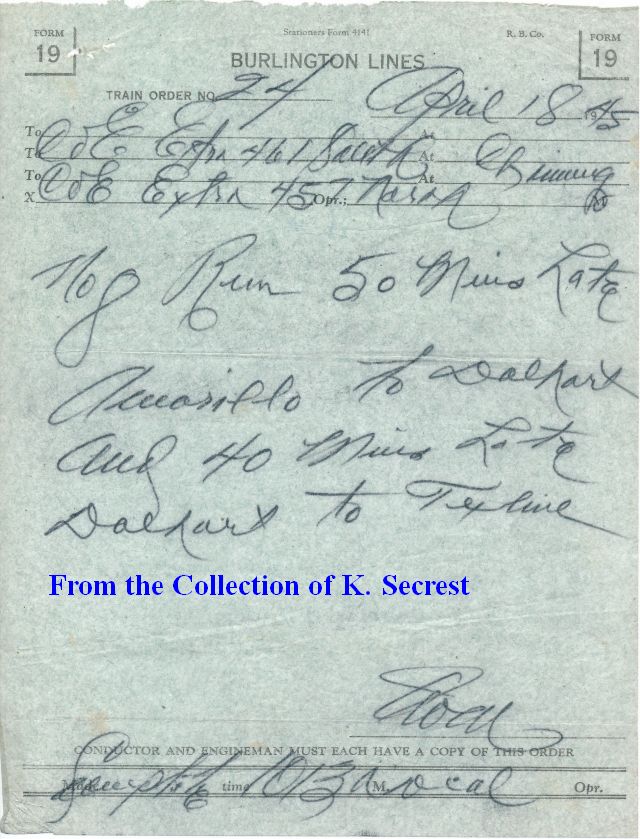 FORM 19
Stationers Form 4141
R. B. Co.
FORM 19
BURLINGTON LINES
TRAIN ORDER NO. 24 April 18 1945
To At
To C&E Extra 461 South At Channing
To C&E Extra 457 North At
X Opr.;
No 8 Run 50 Mins Late
Amarillo to Dalhart
and 40 Mins Late
Dalhart to Texline
From the Collection of K. Secrest
CONDUCTOR AND ENGINEMAN MUST EACH HAVE A COPY OF THIS ORDER
Made time M. Opr.